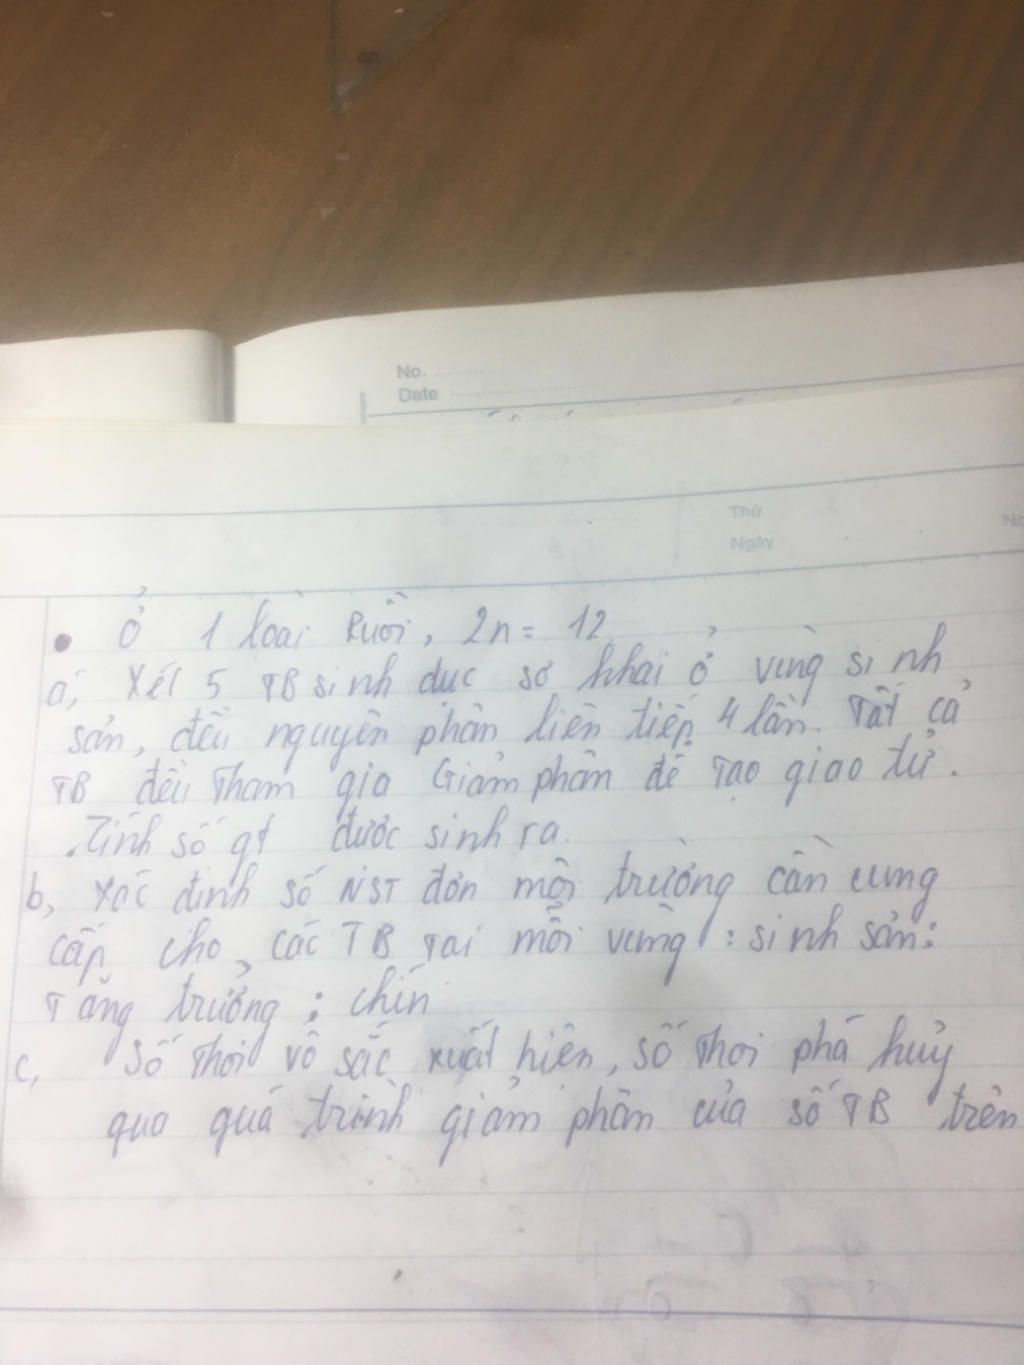 No.
Date
Thứ
Ngày
No
• Ở 1 loài Ruồi, 2n = 12
a, Xét 5 TB sinh dục sơ khai ở vùng sinh
sản, đều nguyên phân liên tiếp 4 lần. Tất cả
TB đều Tham gia Giảm phân để Tạo giao tử.
. Tính số gt được sinh ra.
b, Xác định số NST đơn môi trường cần cung
cấp cho các TB Tại mỗi vùng : sinh sản:
Tăng trưởng ; chín
c, Số Thoi vô sắc xuất hiện, số Thoi phá hủy
qua quá trình giảm phân của số TB trên